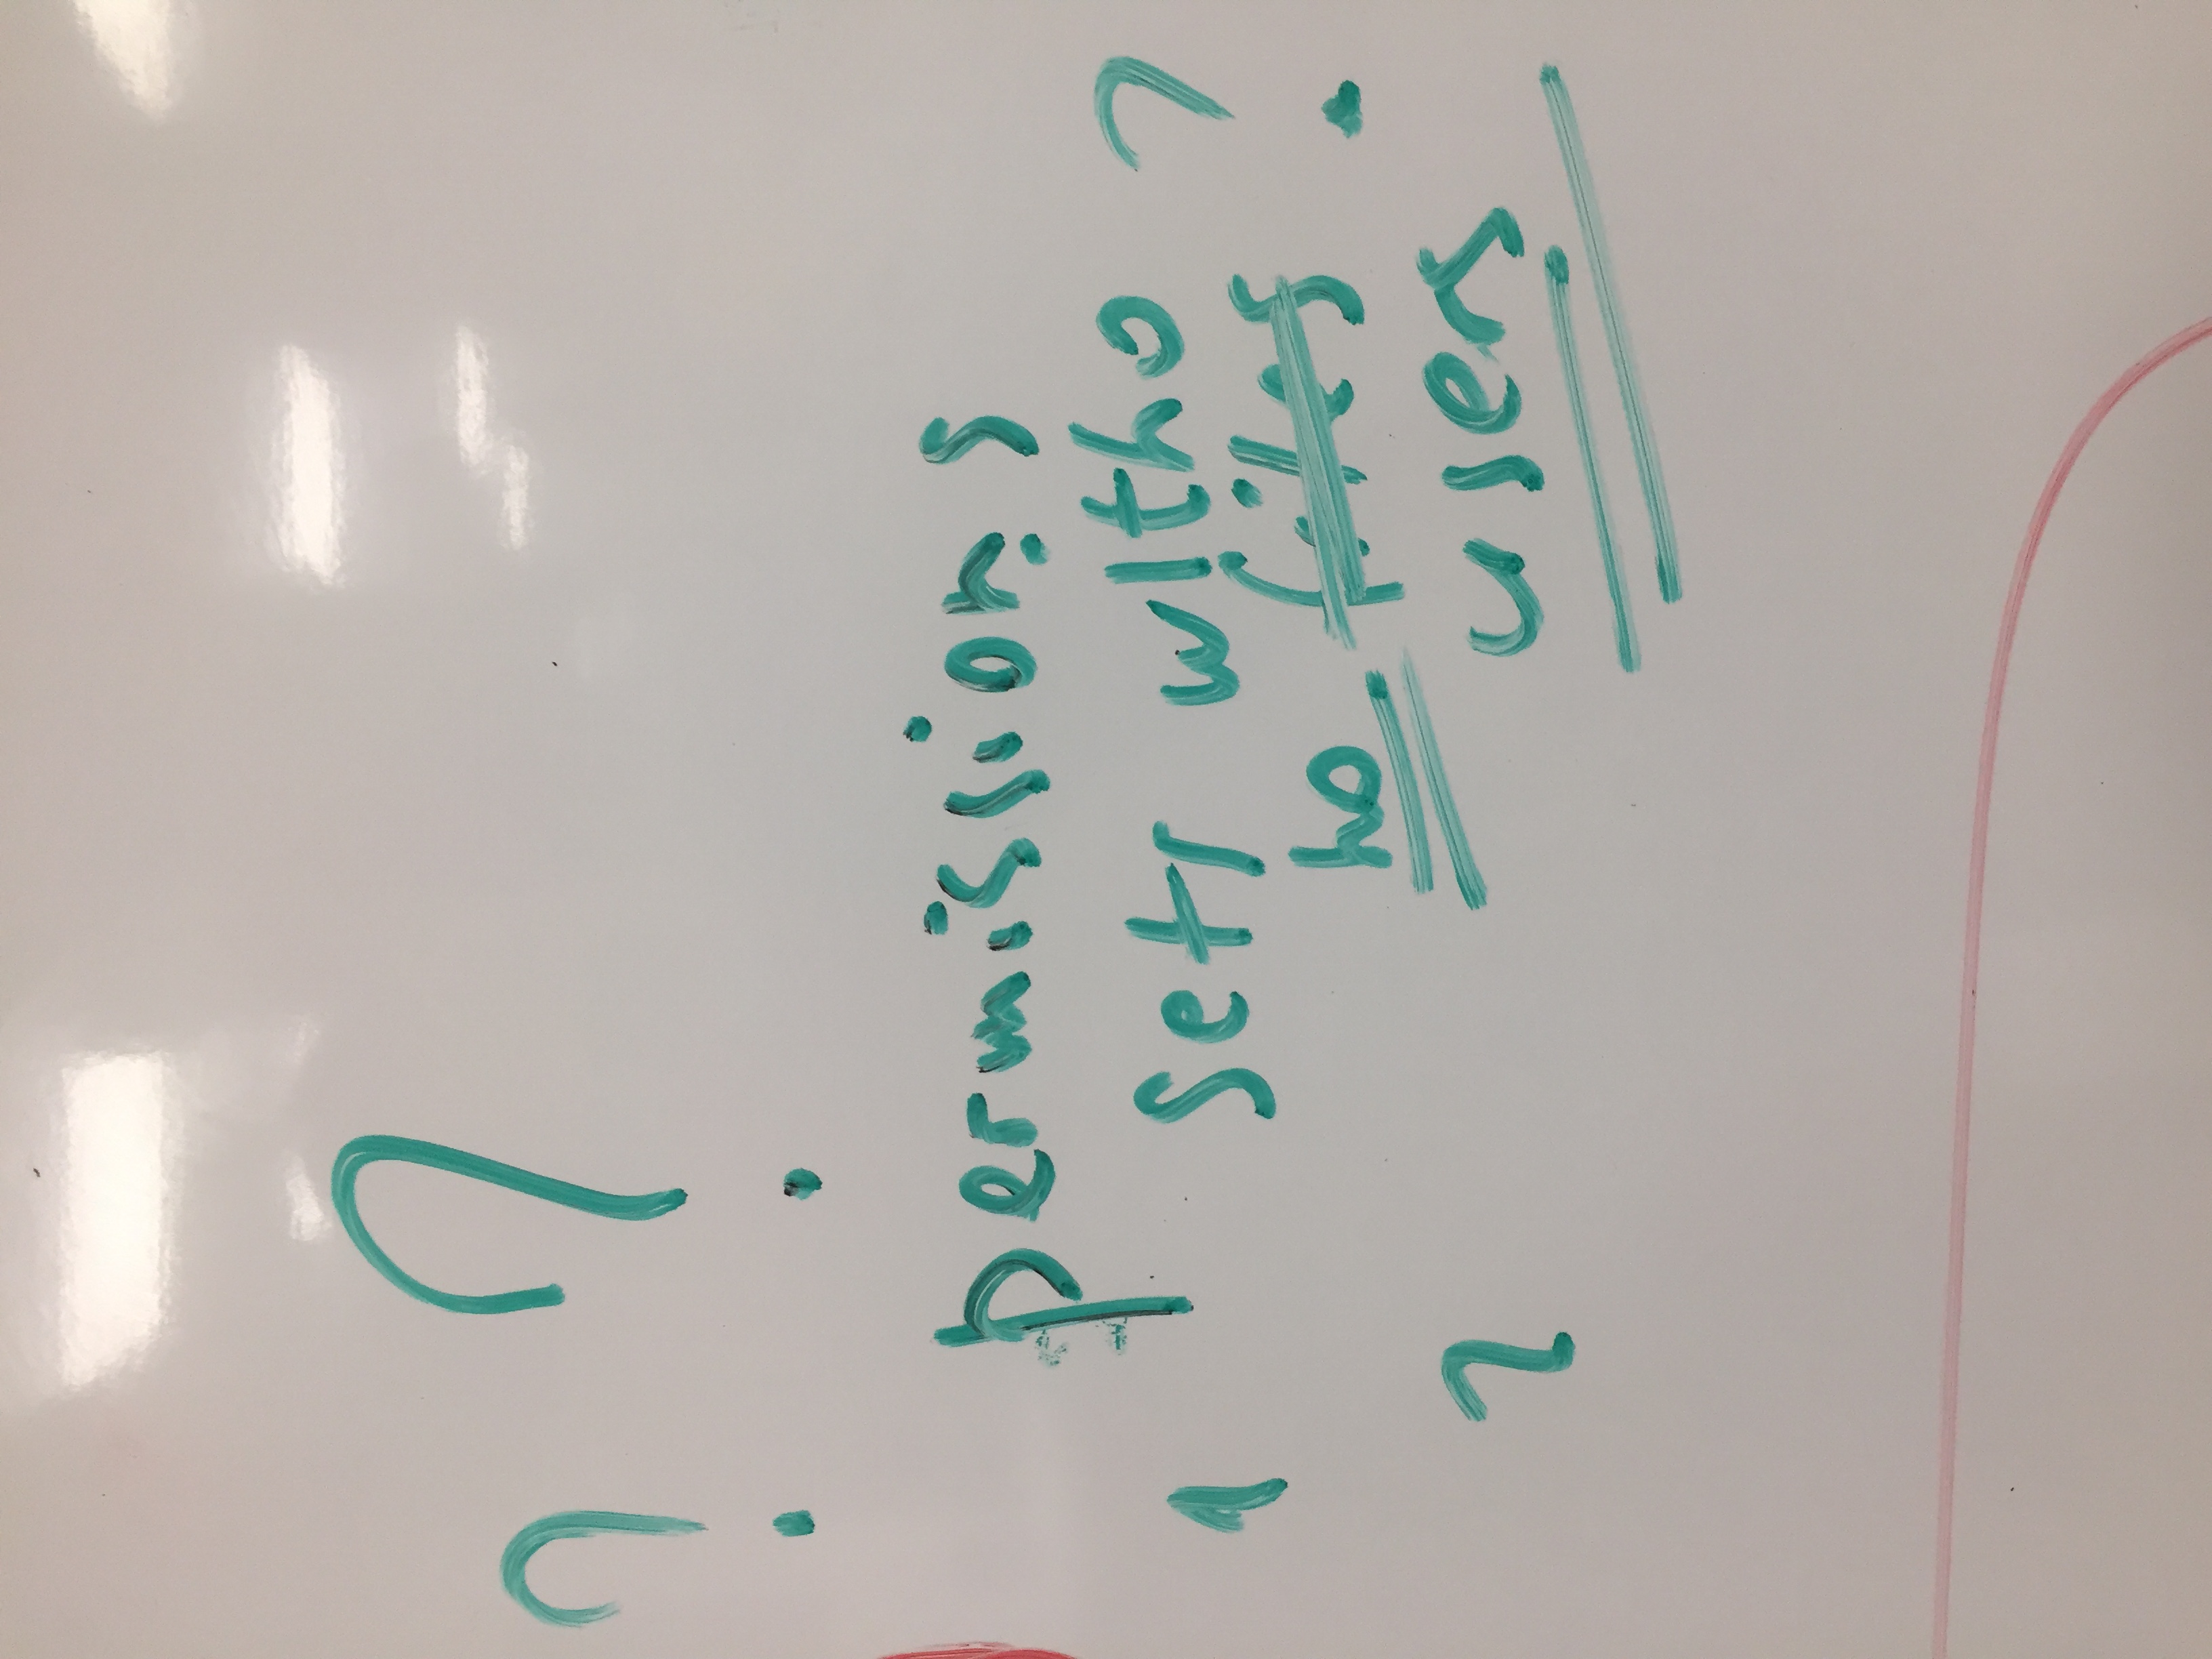 ? ?
permissions
sets witho ?
no files
users